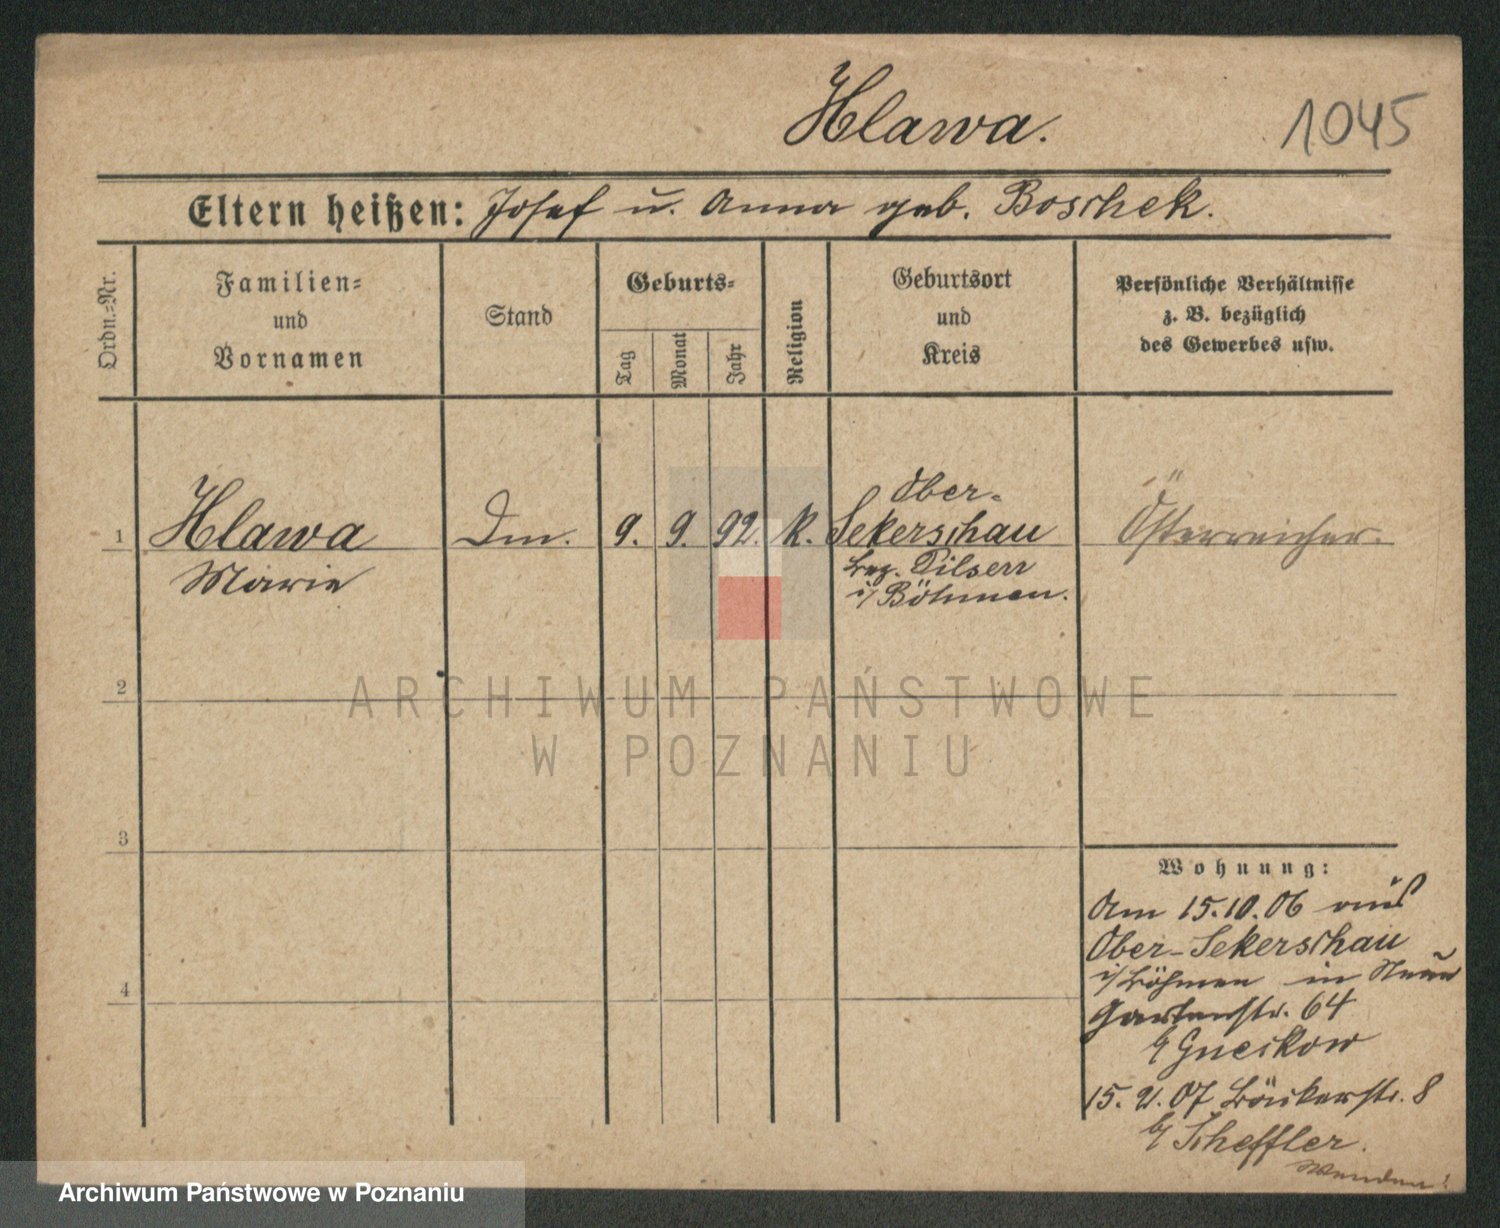 Hlawa.
1045
Eltern heißen: Josef u. Anna geb. Boschek.
Ordn.-Nr.
Familien-
und
Vornamen
Stand
Geburts-
Tag
Monat
Jahr
Religion
Geburtsort
und
Kreis
Persönliche Verhältnisse
z. B. bezüglich
des Gewerbes usw.
1 Hlawa
Marie
9. 9. 92. k.
Ober-
Sekerschau
Bez. Pilsen
i/ Böhmen.
Österreicher.
2
3
4
Wohnung:
Am 15.10.06 aus
Ober-Sekerschau
i/ Böhmen in
Gartenstr. 64
b/
15. 07 Bäckerstr. 8
b/ Scheffler.
Wenden!
ARCHIWUM PAŃSTWOWE
W POZNANIU
Archiwum Państwowe w Poznaniu